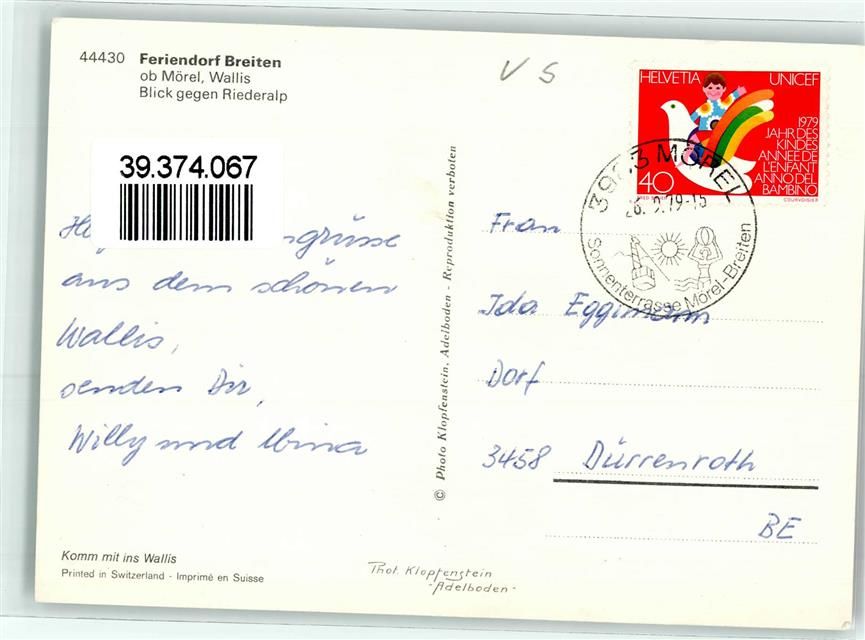 44430 Feriendorf Breiten
ob Mörel, Wallis
Blick gegen Riederalp
V S
39.374.067
grüsse
aus dem schönen
Wallis,
senden Dir,
Willy und
Komm mit ins Wallis
Printed in Switzerland - Imprimé en Suisse
© Photo Klopfenstein, Adelboden - Reproduktion verboten
Phot. Klopfenstein
-Adelboden-
HELVETIA UNICEF
1979
JAHR DES
KINDES
ANNÉE DE
L'ENFANT
ANNO DEL
BAMBINO
40
COURVOISIER
MÖREL
26. 9. 79-15
Sonnenterrasse Mörel-Breiten
Frau
Ida Eggimann
Dorf
3458 Dürrenroth
BE